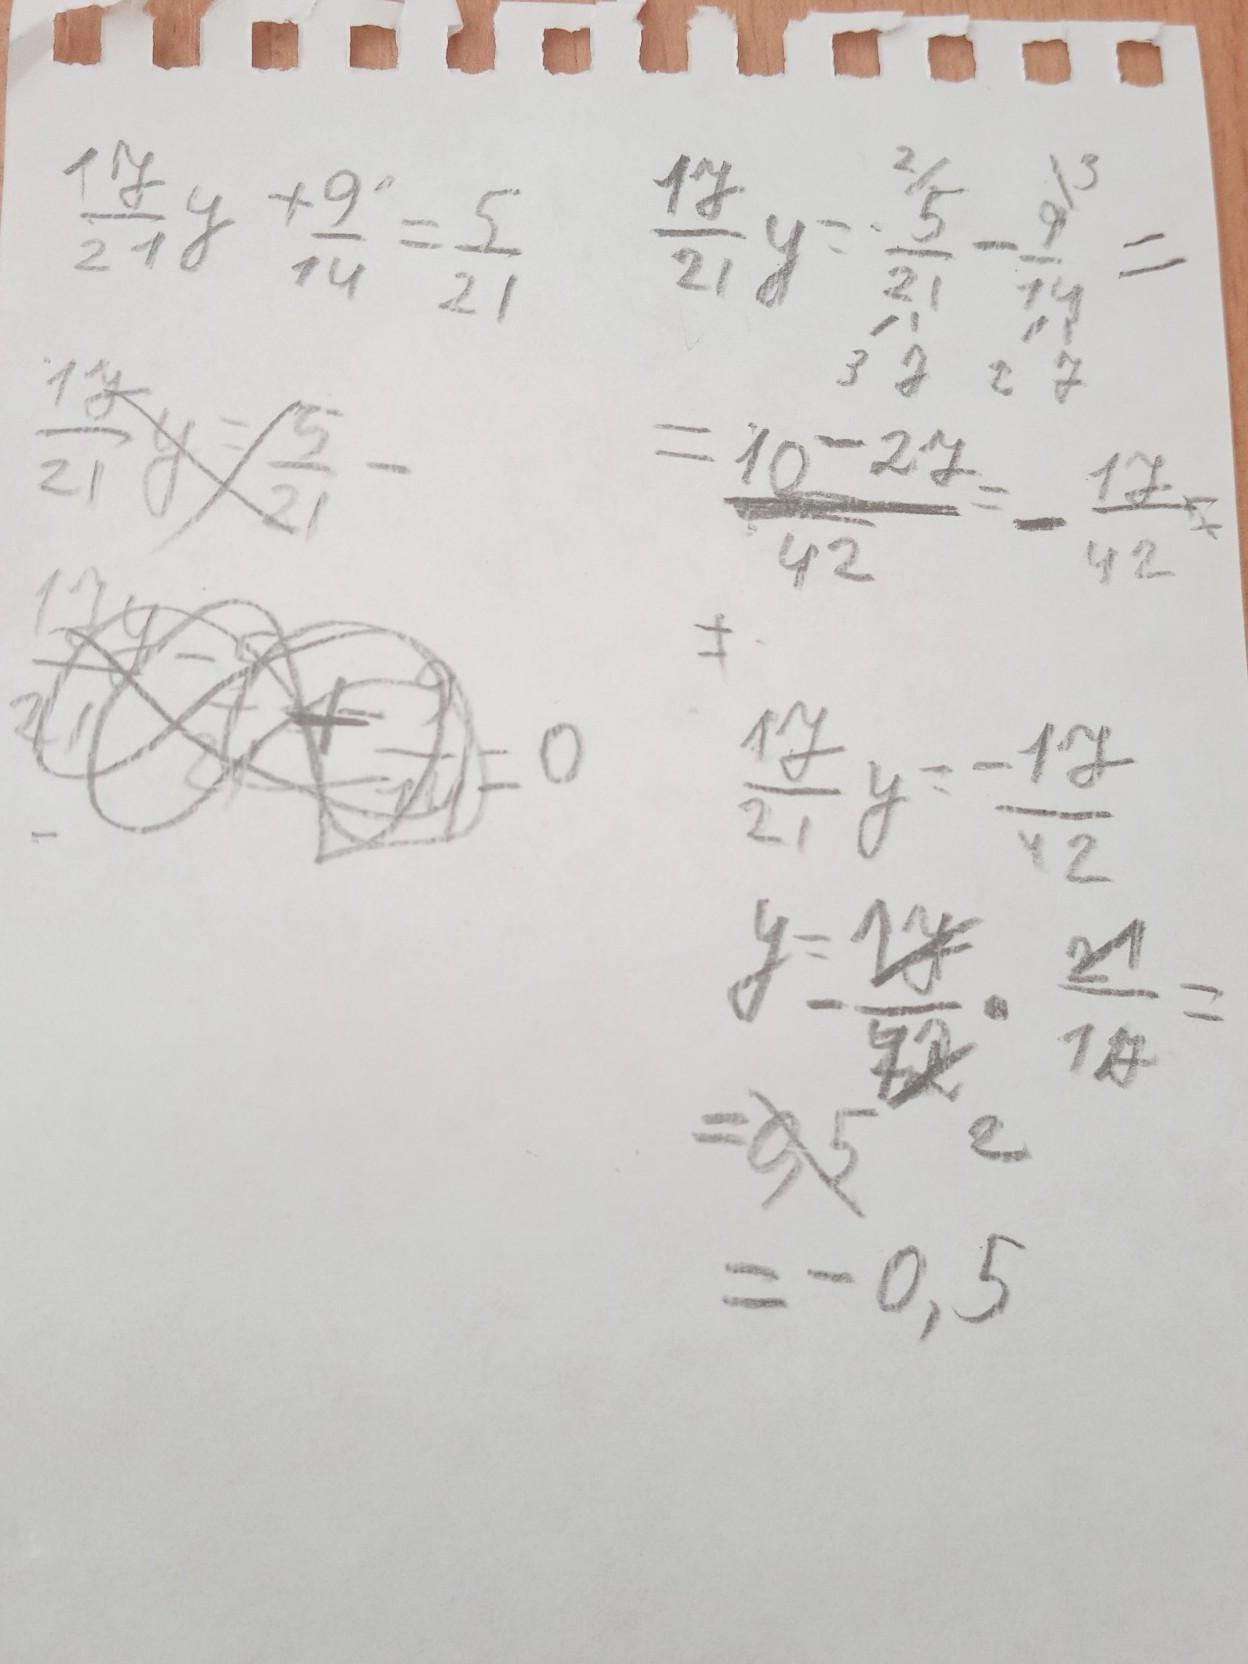 17/21 y + 9/14 = 5/21
17/21 y = 5/21 -
= 0
-
17/21 y = 5/21 - 9/14 =
2/ /3
3 7 2 7
= 10 - 27/42 = - 17/42 =
=
17/21 y = - 17/42
y = - 17/42 · 21/17 =
2
= 0,5
= - 0,5